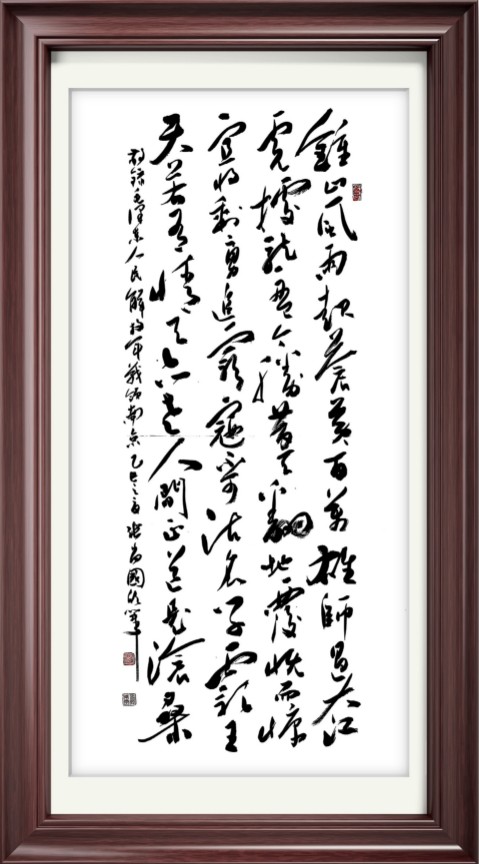 鍾山風雨起蒼黃百萬雄師過大江
虎據龍盤今勝昔天翻地覆慨而慷
宜将剩勇追窮寇不可沽名學霸王
天若有情天亦老人間正道是滄桑
敬錄毛澤東人民解放軍戰領南京乙巳之夏